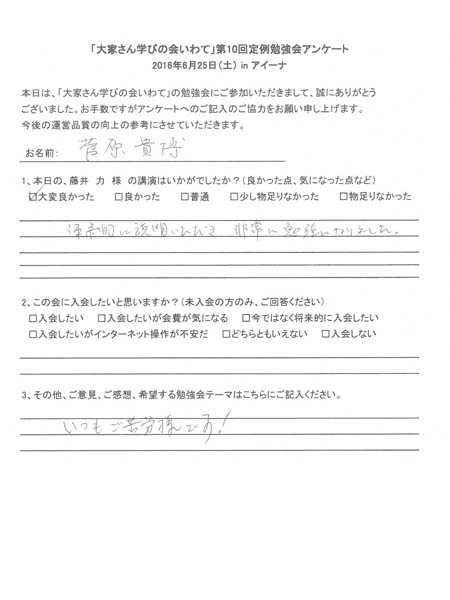 「大家さん学びの会いわて」第10回定例勉強会アンケート
2016年6月25日(土) in アイーナ
本日は、「大家さん学びの会いわて」の勉強会にご参加いただきまして、誠にありがとう
ございました。お手数ですがアンケートへのご記入のご協力をお願い申し上げます。
今後の運営品質の向上の参考にさせていただきます。
お名前: 菅原 貴博
1、本日の、藤井 力 様 の講演はいかがでしたか?(良かった点、気になった点など)
☑大変良かった □良かった □普通 □少し物足りなかった □物足りなかった
体系的に説明いただき 非常に勉強になりました。
2、この会に入会したいと思いますか?(未入会の方のみ、ご回答ください)
□入会したい □入会したいが会費が気になる □今ではなく将来的に入会したい
□入会したいがインターネット操作が不安だ □どちらともいえない □入会しない
3、その他、ご意見、ご感想、希望する勉強会テーマはこちらにご記入ください。
いつもご苦労様です!